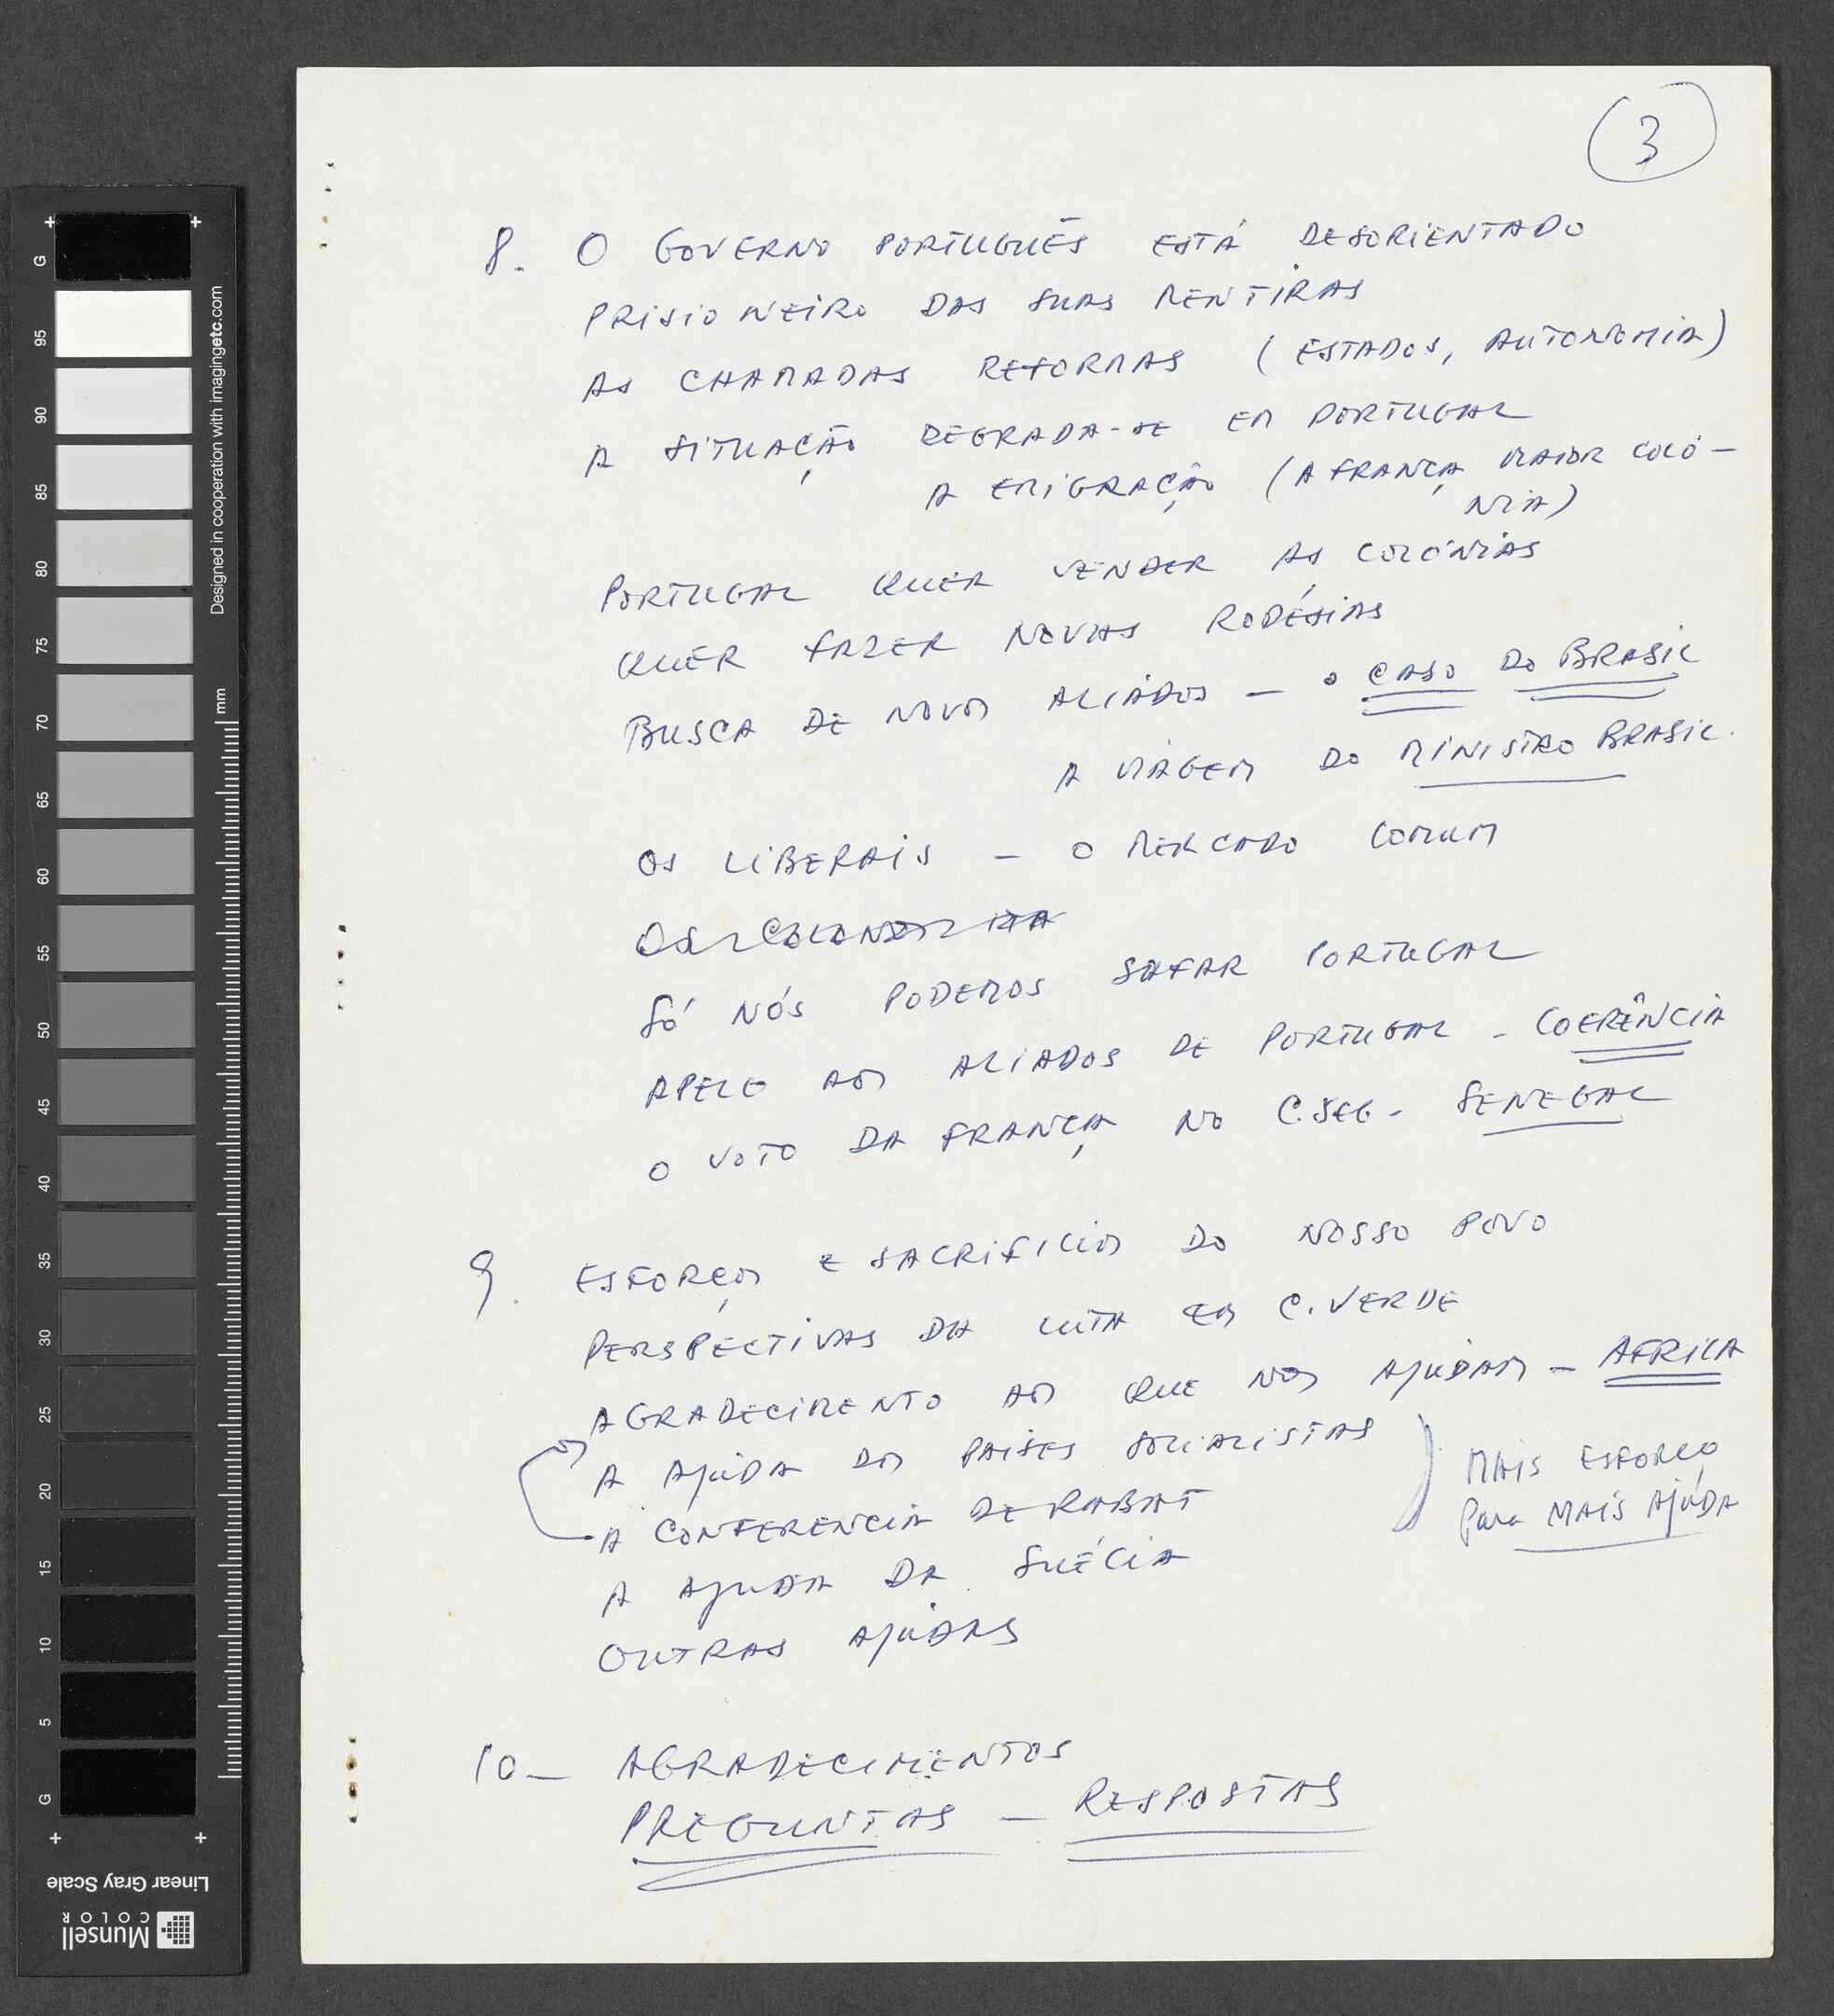 3
8. O GOVERNO PORTUGUÊS ESTÁ DESORIENTADO
PRISIONEIRO DAS SUAS MENTIRAS
AS CHAMADAS REFORMAS (ESTADOS, AUTONOMIA)
A SITUAÇÃO DEGRADA-SE EM PORTUGAL
A EMIGRAÇÃO (A FRANÇA MAIOR COLÓ-
NIA)
PORTUGAL QUER VENDER AS COLÓNIAS
QUER FAZER NOVAS RODÉSIAS
BUSCA DE NOVOS ALIADOS – O CASO DO BRASIL
A VIAGEM DO MINISTRO BRASIL.
OS LIBERAIS – O MERCADO COMUM
SÓ NÓS PODEMOS SAFAR PORTUGAL
APELO AOS ALIADOS DE PORTUGAL – COERÊNCIA
O VOTO DA FRANÇA NO C. SEG – SENEGAL
9. ESFORÇOS E SACRIFICIOS DO NOSSO POVO
PERSPECTIVAS DA LUTA EM C. VERDE
AGRADECIMENTO AOS QUE NOS AJUDAM – AFRICA
A AJUDA DOS PAISES SOCIALISTAS
MAIS ESFORÇO
Para MAIS AJUDA
A CONFERENCIA DE RABAT
A AJUDA DA SUÉCIA
OUTRAS AJUDAS
10 – AGRADECIMENTOS
PREGUNTAS – RESPOSTAS
G
95
90
85
80
75
70
65
60
55
50
45
40
35
30
25
20
15
10
5
G
Designed in cooperation with imagingetc.com
mm
Linear Gray Scale
Munsell
COLOR